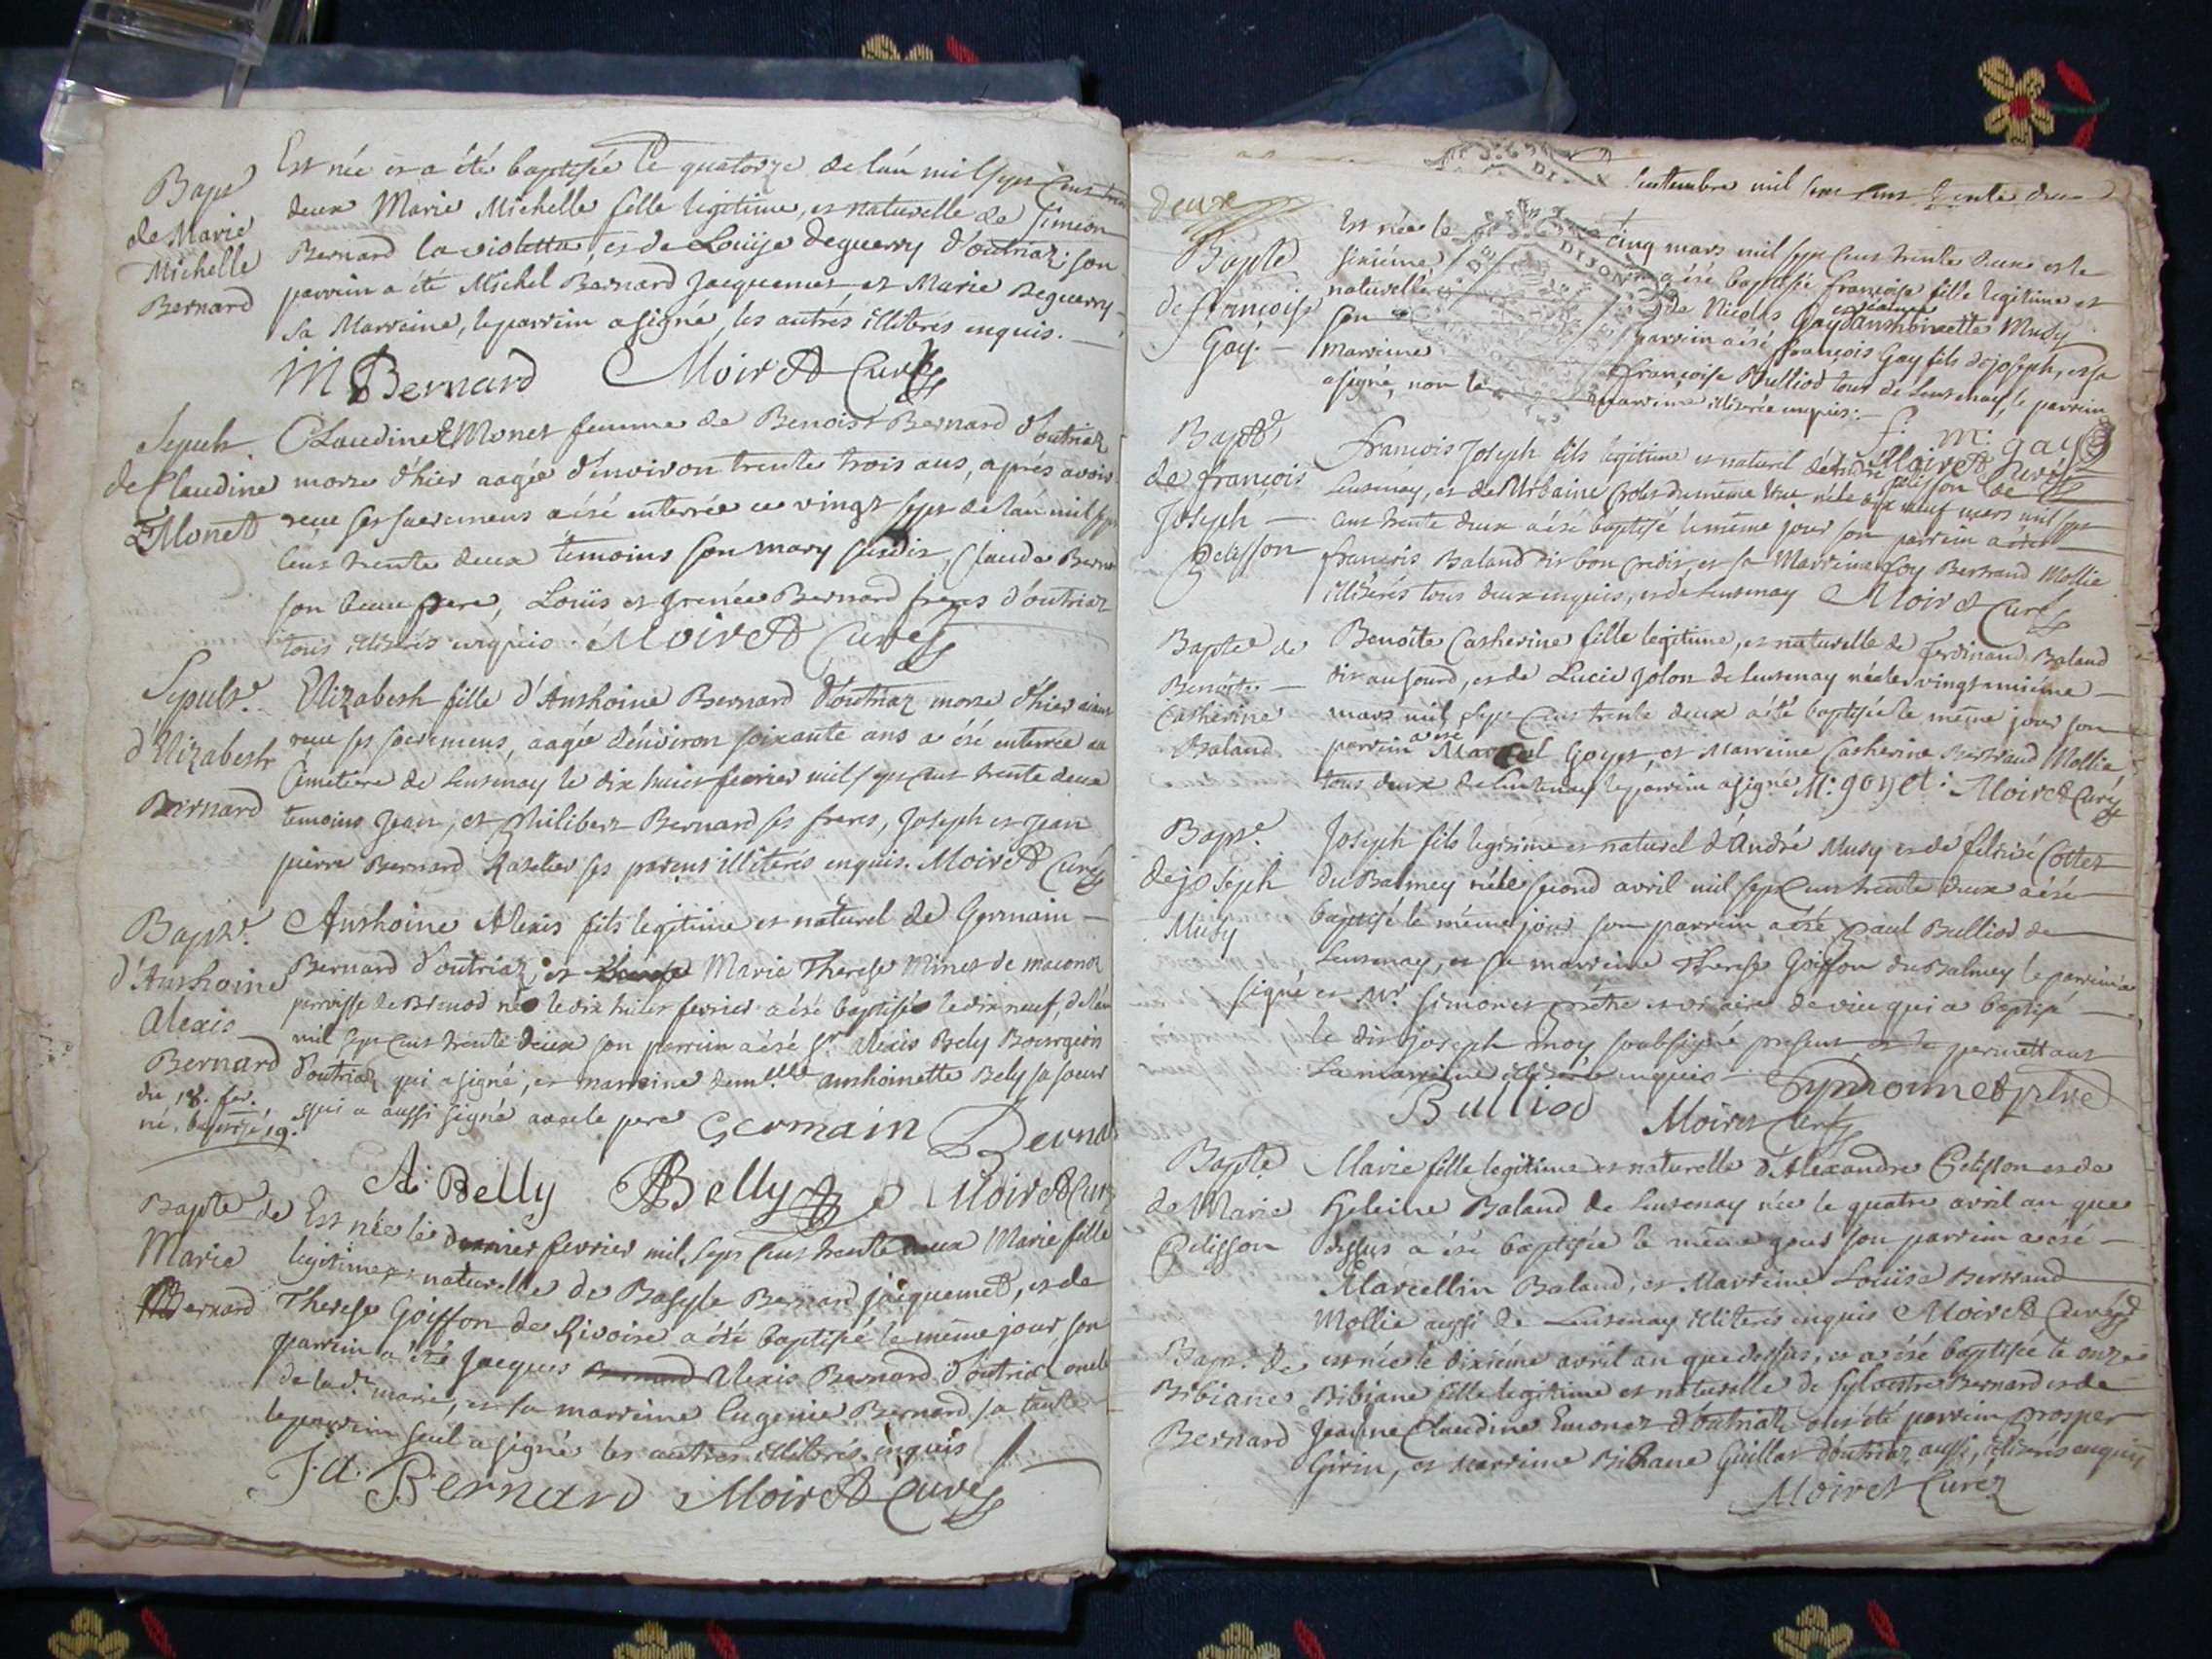 Bapt
de Marie
Michelle
Bernard
Est née et a été baptisée le quatorze de l'an mil sept cens
deux Marie Michelle fille legitime, et naturelle de Simeon
Bernard la violette, et de Louïse Deguerry d'outriaz; son
parrain a été Michel Bernard Jacquemet et Marie Deguerry
sa Marraine, le parrin a signé, les autres illiterés enquis.
M Bernard Moiret Curé
Sepult.
de Claudine
EMonet
Claudine EMonet femme de Benoist Bernard d'outriaz
morte d'hier aagée d'environ trente trois ans, aprés avoir
receu ses sacremens a été enterrée ce vingt sept de l'an mil sept
cens trente deux temoins son mary susdit, Claude
son beau frere, Louïs et Bernard freres d'outriaz
tous illiterés enquis. Moiret Curé
Sepult.
d'Elizabeth
Bernard
Elizabeth fille d'Anthoine Bernard d'outriaz morte d'hier aiant
receu ses sacremens, aagée d'environ soixante ans a été enterrée au
Cimetiere de Leutenay le dix huict fevrier mil sept cens trente deux
temoins Jean, et Philibert Bernard ses freres, Joseph et Jean
pierre Bernard ses parens illiterés enquis. Moiret Curé
Bapt.
d'Anthoine
Alexis
Bernard
du 18. fev.
né, baptisé 19.
Anthoine Alexis fils legitime et naturel de Germain
Bernard d'outriaz, et Marie Therese Minet de maconod
parroisse de Brenod né le dix huict fevrier a été baptisé le dix neuf, de l'an
mil sept cens trente deux son parrin a été Sr. Alexis Bely Bourgeois
d'outriaz qui a signé, et marraine demlle. anthoinette Bely sa soeur
qui a aussi signé avec le pere Germain
A: Belly ABelly Moiret Curé
Bapte de
Marie
Bernard
Est née le dernier fevrier mil sept cens trente deux Marie fille
legitime et naturelle de Basyle Bernard jacquemet, et de
Therese Goiffon de Rivoire a été baptisée le même jour, son
parrin a été Jacques Alexis Bernard d'outriaz oncle
de lad. marie, et sa marraine Eugenie Bernard sa tante
le parrin seul a signé les autres illiterés enquis
J. a. Bernard Moiret Curé
Septembre mil sept cens trente deux
deux
DIJON
Bapte
de françoise
Gay.
Est née le cinq mars mil sept cens trente deux et le
sixiéme a été baptisée françoise fille legitime et
naturelle de Nicolas Gay et anthoinette Musy
son parrin a été françois Gay fils de joseph, et sa
marraine françoise Bulliod tous de Leutenay, le parrin
a signé, non la marraine illiterée enquise.
f. m. gay
Moiret Curé
Bapt
de françois
Joseph
Pelisson
François Joseph fils legitime et naturel d'André Pelisson de
Leutenay, et de Urbaine du même lieu né le dix neuf mars mil sept
cens trente deux a été baptisé le même jour son parrin a été
françois Baland dit bon credit et sa Marraine Bertrand Mollie
illiterés tous deux enquis, et de Leutenay Moiret Curé
Bapte de
Benoite
Catherine
Baland
Benoite Catherine fille legitime, et naturelle de Ferdinand Baland
dit au sourd, et de Lucie Jolon de Leutenay née le vingt uniéme
mars mil sept cens trente deux a été baptisée le même jour son
parrin a été Marcel Goyet, et Marraine Catherine Bertrand Mollie
tous deux de Leutenay le parrin a signé M: goyet: Moiret Curé
Bapt.
de joseph
Musy
Joseph fils legitime et naturel d'André Musy et de felrisé Cottet
du Balmey né le second avril mil sept cens trente deux a été
baptisé le même jour son parrin a été Paul Bulliod de
Leutenay, et sa marraine Therese Goiffon du Balmey le parrin a
signé et Mr. Simonet prêtre et vicaire de vieu qui a baptisé
le dit joseph moy soubsigné present et le permettant
la marraine illiterée enquise
Bulliod Moiret Curé Symonnet ptre
Bapte
de Marie
Pelisson
Marie fille legitime et naturelle d'Alexandre Pelisson et de
Heleine Baland de Leutenay née le quatre avril an que
dessus a été baptisée le même jour son parrin a été
Marcellin Baland, et Marraine Louïse Bertrand
Mollie aussi de Leutenay illiterés enquis Moiret Curé
Bapt. de
Bibiane
Bernard
est née le dixieme avril an que dessus, et a été baptisée le onze
Bibiane fille legitime et naturelle de Sylvestre Bernard et de
Jeanne Claudine Emonet d'outriaz ont été parrin prosper
Girin, et marraine Bibiane Guillot d'outriaz aussi, illiterés enquis
Moiret Curé